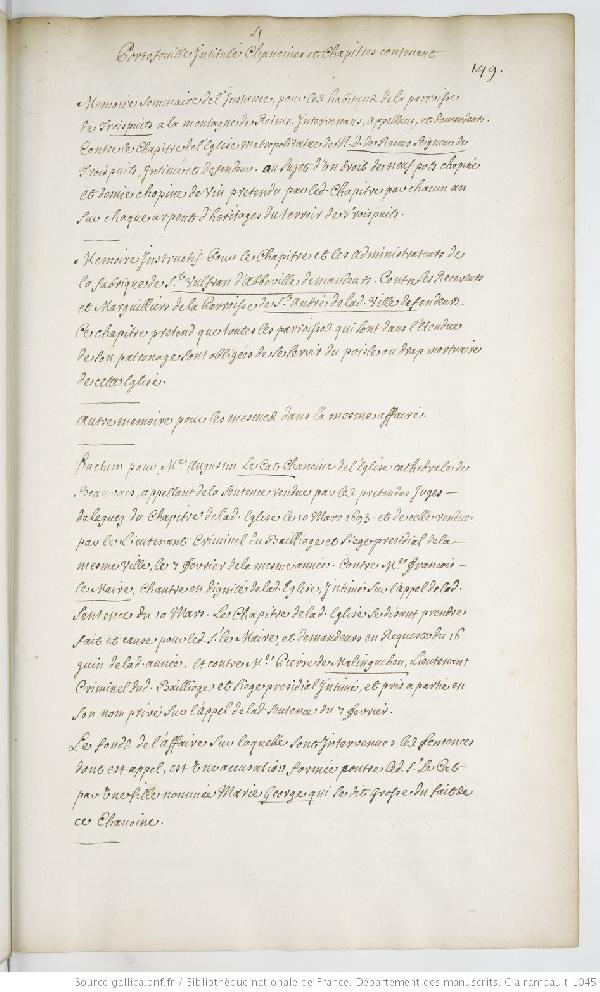 4
Portefeuille Intitulé Chanoines et Chapitres contenant
149.
Memoire sommaire de l'Instance, pour les habitans de la parroisse
de Troispuits a la montagne de Reims. Intervenans, appellans, et demandeurs.
Contre le Chapitre de l'Eglise metropolitaine de N. D. de Reims Seigneur de
Troispuits, Intimé et defendeur. au Sujet d'un droit de neuf pots chopine
et demie chopine de vin pretendu par led. Chapitre par chacun an
sur chaque arpent d'heritages du terroir de Troispuits.
Memoire Instructif pour le Chapitre et les administrateurs de
la fabrique de St. Vulfran d'Abbeville demandeurs. Contre les Receveurs
et Marguilliers de la Parroisse de St. André de lad. Ville defendeurs.
Ce chapitre pretend que toutes les parroisses qui sont dans l'étendue
de son patronage sont obligées de se servir du poisle ou drap mortuaire
de cette Eglise.
Autre memoire pour les mesmes dans la mesme affaire.
Factum pour Me. Augustin Le Cat Chanoine de l'Eglise cathedrale de
Beauvais, appellant de la Sentence rendue par les pretendus Juges
deleguez du Chapitre de lad. Eglise le 10 Mars 1693. et de celle rendue
par le Lieutenant Criminel du Bailliage et Siege presidial de la
mesme ville, le 7 fevrier de la mesme année. Contre Me. François
le Maire, Chantre en dignité de lad Eglise, Intimé sur l'appel de lad.
Sentence du 10 Mars. Le Chapitre de lad. Eglise se disant prendre
fait et cause pour led. Sr. le Maire, et demandeurs en Requeste du 16
juin de lad. année. Et contre Me. Pierre de Malinguehen, Lieutenant
Criminel dud. Bailliage et Siege presidial Intimé, et pris a partie en
son nom privé sur l'appel de lad. Sentence du 7 fevrier.
Le fonds de l'affaire sur laquelle sont Intervenues les Sentences
dont est appel, est Une accusation formée contre led. Sr. Le Cat
par Une fille nommée Marie George qui se dit grosse du fait de
ce Chanoine.
Source gallica.bnf.fr / Bibliothèque nationale de France. Département des manuscrits. Clairambault 1045